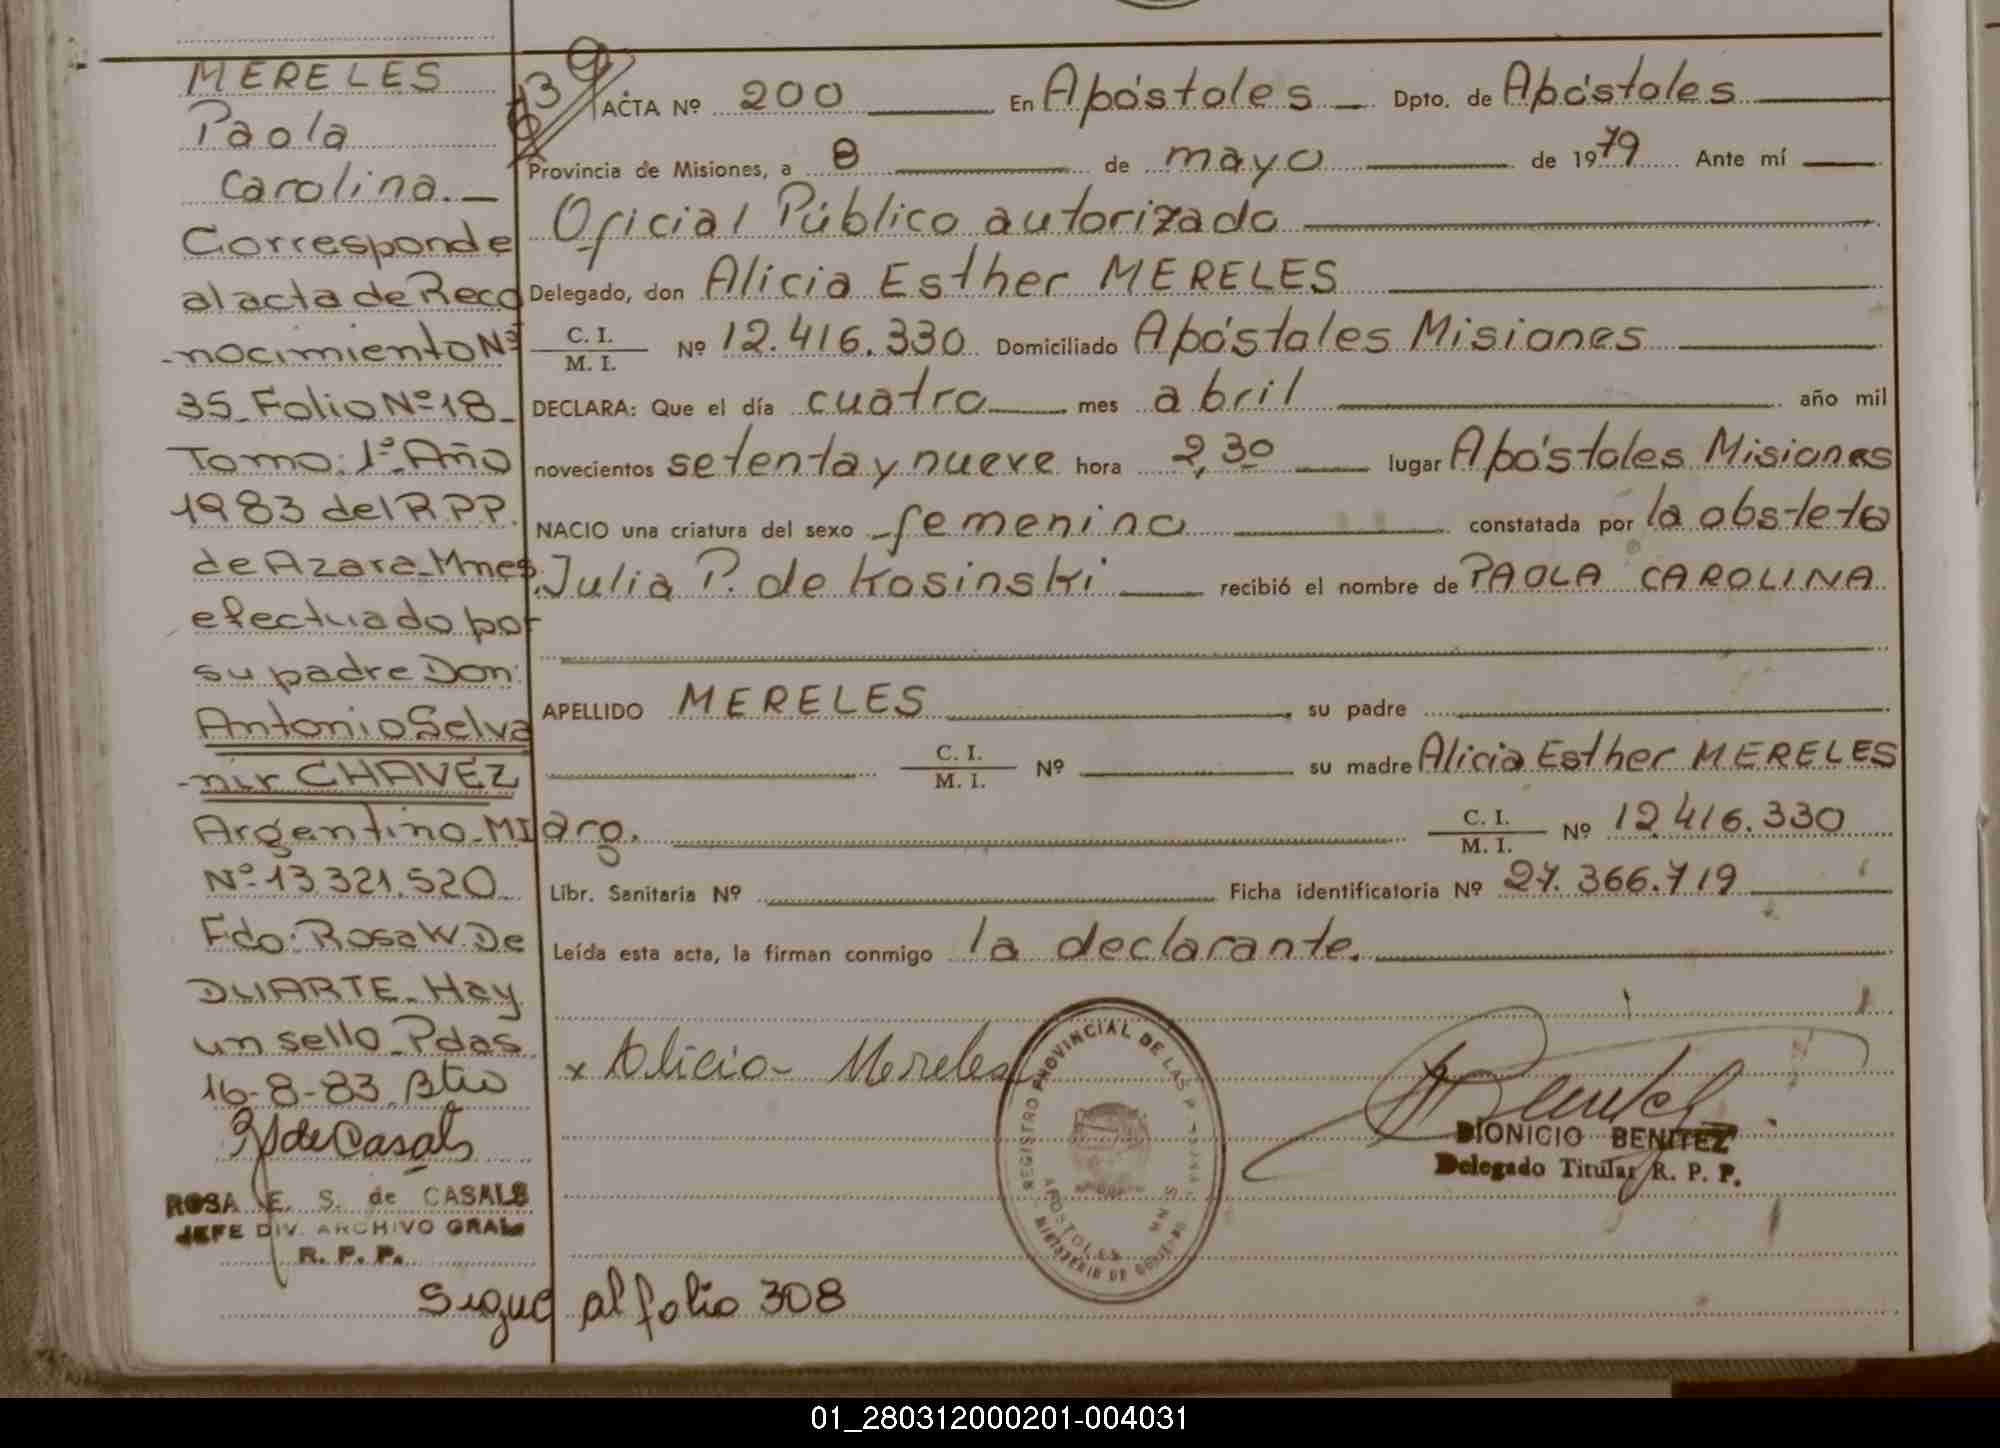 MERELES
Paola
Carolina.
Corresponde
al acta de Reco
-nocimiento Nº
35 Folio Nº 18
Tomo: 1º Año
1983 del R.P.P.
de Azara Mnes.
efectuado por
su padre Don:
Antonio Selva
-nir CHAVEZ
Argentino MI
Nº 13.321.520
Fdo: Rosa W. De
DUARTE. Hay
un sello. Pdas.
16-8-83.
ROSA E. S. de CASALS
JEFE DIV. ARCHIVO GRAL
R. P. P.
ACTA Nº 200 En Apóstoles Dpto. de Apóstoles
Provincia de Misiones, a 8 de mayo de 1979 Ante mí
Oficial Público autorizado
Delegado, don Alicia Esther MERELES
C. I. / M. I. Nº 12.416.330 Domiciliado Apóstoles Misiones
DECLARA: Que el día cuatro mes abril año mil
novecientos setenta y nueve hora 2,30 lugar Apóstoles Misiones
NACIO una criatura del sexo femenino constatada por la obsteta
Julia P. de Kosinski recibió el nombre de PAOLA CAROLINA
APELLIDO MERELES su padre
C. I. / M. I. Nº su madre Alicia Esther MERELES
arg. C. I. / M. I. Nº 12.416.330
Libr. Sanitaria Nº Ficha identificatoria Nº 27.366.719
Leída esta acta, la firman conmigo la declarante.
x Alicia Mereles
REGISTRO PROVINCIAL DE LAS
APOSTOLES MNES
MINISTERIO DE
DIONICIO BENITEZ
Delegado Titular R. P. P.
Sigue al folio 308
01_280312000201-004031